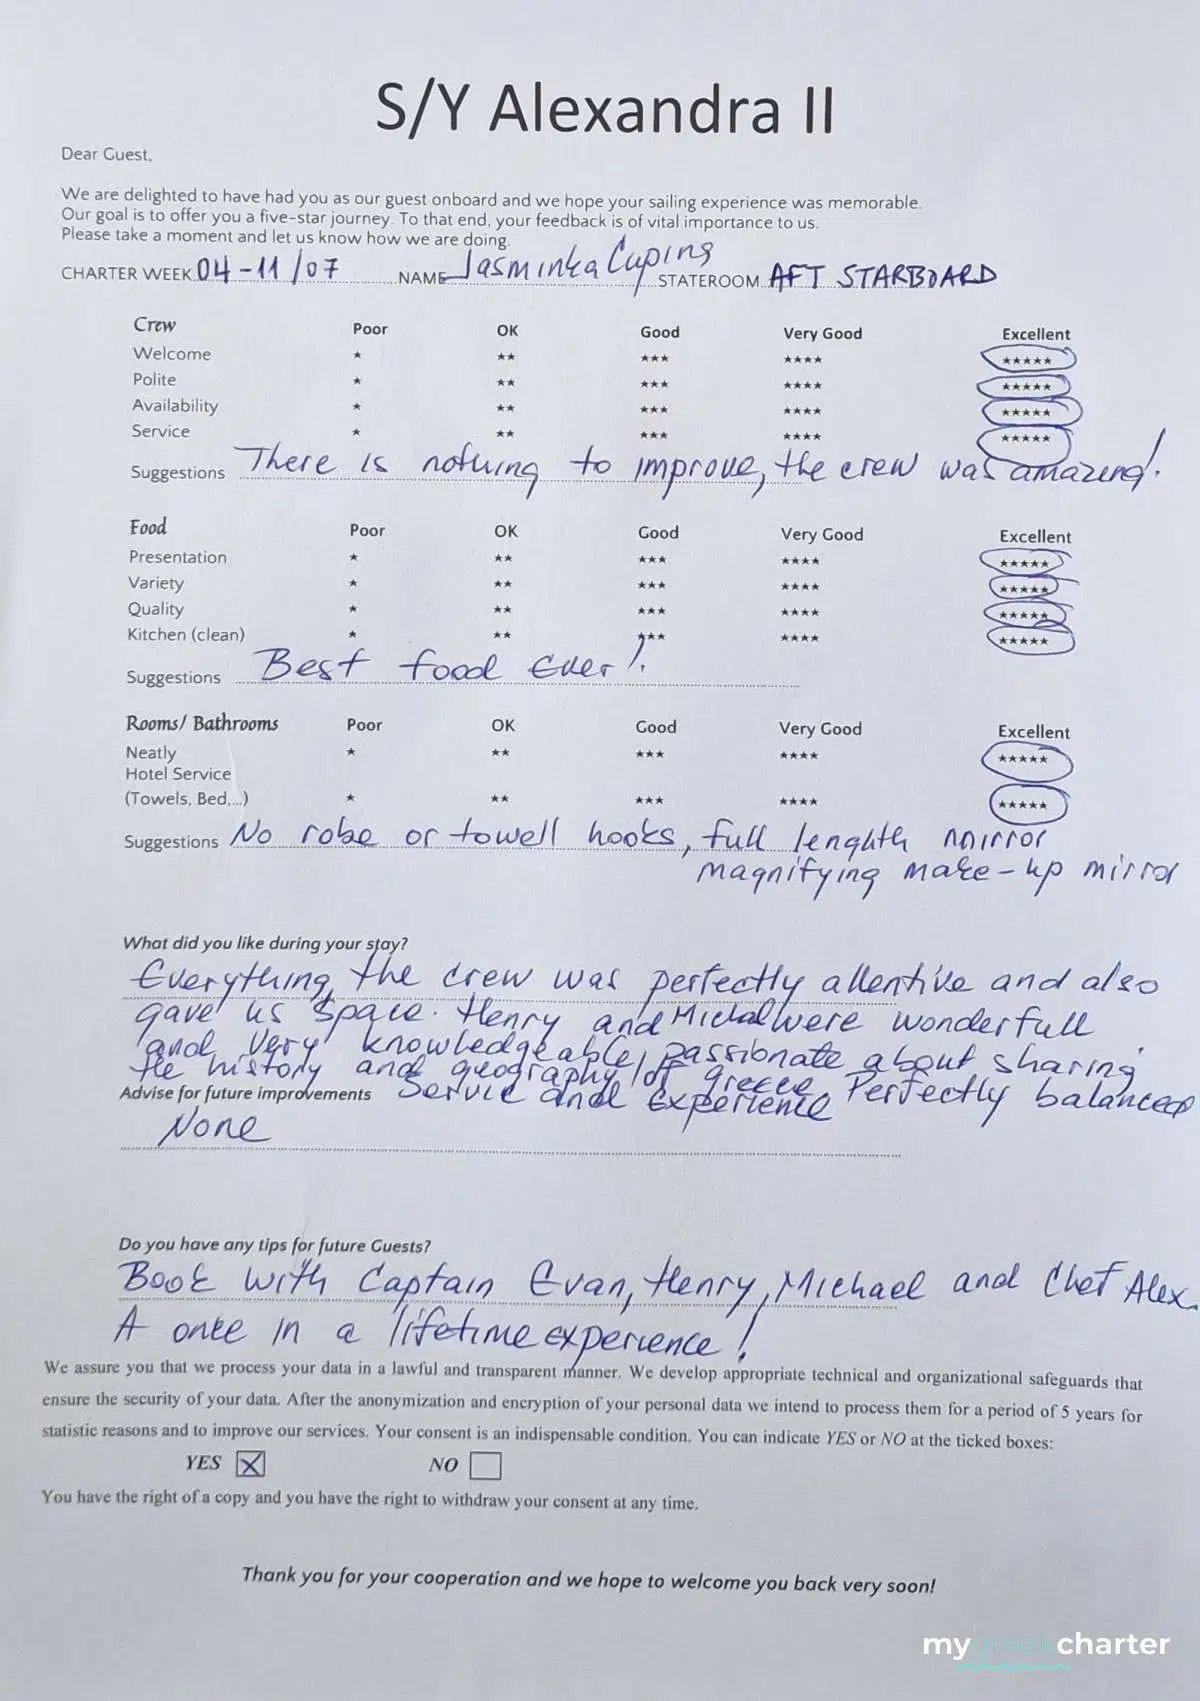 S/Y Alexandra II
Dear Guest,
We are delighted to have had you as our guest onboard and we hope your sailing experience was memorable.
Our goal is to offer you a five-star journey. To that end, your feedback is of vital importance to us.
Please take a moment and let us know how we are doing.
CHARTER WEEK 04-11/07 NAME Jasminka Cuping STATEROOM AFT STARBOARD
Crew Poor OK Good Very Good Excellent
Welcome ★ ★★ ★★★ ★★★★ ★★★★★
Polite ★ ★★ ★★★ ★★★★ ★★★★★
Availability ★ ★★ ★★★ ★★★★ ★★★★★
Service ★ ★★ ★★★ ★★★★ ★★★★★
Suggestions There is nothing to improve, the crew was amazing!
Food Poor OK Good Very Good Excellent
Presentation ★ ★★ ★★★ ★★★★ ★★★★★
Variety ★ ★★ ★★★ ★★★★ ★★★★★
Quality ★ ★★ ★★★ ★★★★ ★★★★★
Kitchen (clean) ★ ★★ ★★★ ★★★★ ★★★★★
Suggestions Best food Ever!
Rooms/ Bathrooms Poor OK Good Very Good Excellent
Neatly ★ ★★ ★★★ ★★★★ ★★★★★
Hotel Service
(Towels, Bed,...) ★ ★★ ★★★ ★★★★ ★★★★★
Suggestions No robe or towell hooks, full lenghth mirror
magnifying make-up mirror
What did you like during your stay?
Everything, the crew was perfectly attentive and also
gave us space. Henry and Michal were wonderfull
and very knowledgeable, passionate about sharing
the history and geography of greece. Perfectly balanced
Advise for future improvements Service and experience
None
Do you have any tips for future Guests?
Book with Captain Evan, Henry, Michael and Chef Alex.
A once in a lifetime experience!
We assure you that we process your data in a lawful and transparent manner. We develop appropriate technical and organizational safeguards that
ensure the security of your data. After the anonymization and encryption of your personal data we intend to process them for a period of 5 years for
statistic reasons and to improve our services. Your consent is an indispensable condition. You can indicate YES or NO at the ticked boxes:
YES ☒ NO ☐
You have the right of a copy and you have the right to withdraw your consent at any time.
Thank you for your cooperation and we hope to welcome you back very soon!
mygreekcharter